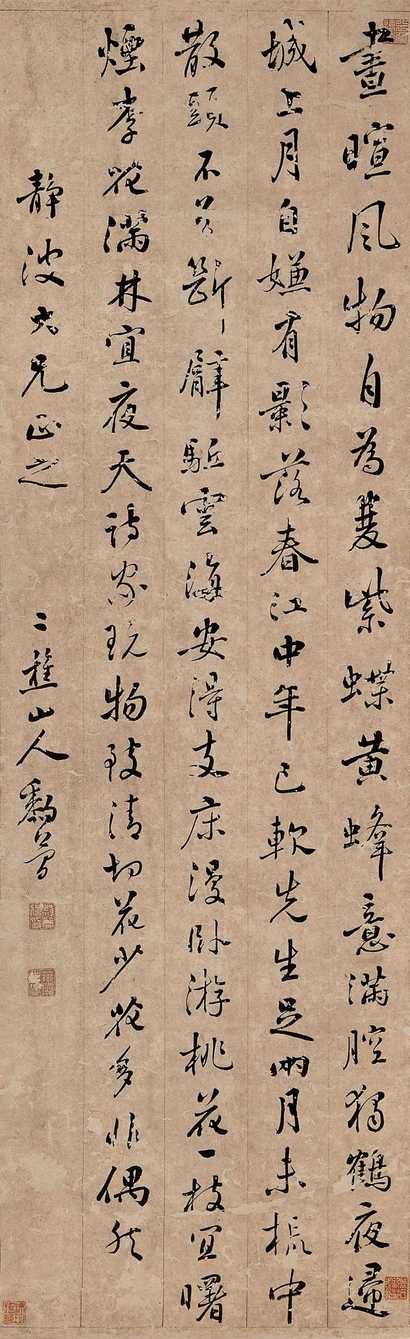 晝暄風物自為雙紫蝶黃蜂意滿腔獨鶴夜歸
城上月自嫌有影落春江中年已軟先生足兩月未梳中
散頭不斷驅雲海安得支床漫臥游桃花一枝宜曙
煙李花滿林宜夜天詩家玩物致清切花少花多非偶然
靜波兄正之 二樵山人黎簡